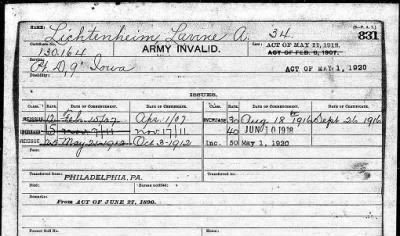 Lichtenheim, Lavine A. 34. (3-P. A. I.)
Certificate No. ARMY INVALID. Law: ACT OF MAY 11, 1912. 831
130164 ACT OF FEB. 6, 1907.
9" Iowa ACT OF MAY 1, 1920
Disability:
ISSUES.
CLASS. RATE. DATE OF COMMENCEMENT. DATE OF CERTIFICATE. CLASS. RATE. DATE OF COMMENCEMENT. DATE OF CERTIFICATE.
REISSUE 12 Feb. 15/07 Apr. 1/07 INCREASE 30 Aug 18th 1916 Sept 26 1916
15 Nov 9/11 Nov 17/11 40 JUN 10 1918
REISSUE 25 May 25 1912 Oct. 3-1912 Inc. 50 May 1, 1920
Transferred from PHILADELPHIA, PA.
Died:
Bureau notified:
From ACT OF JUNE 27, 1890.